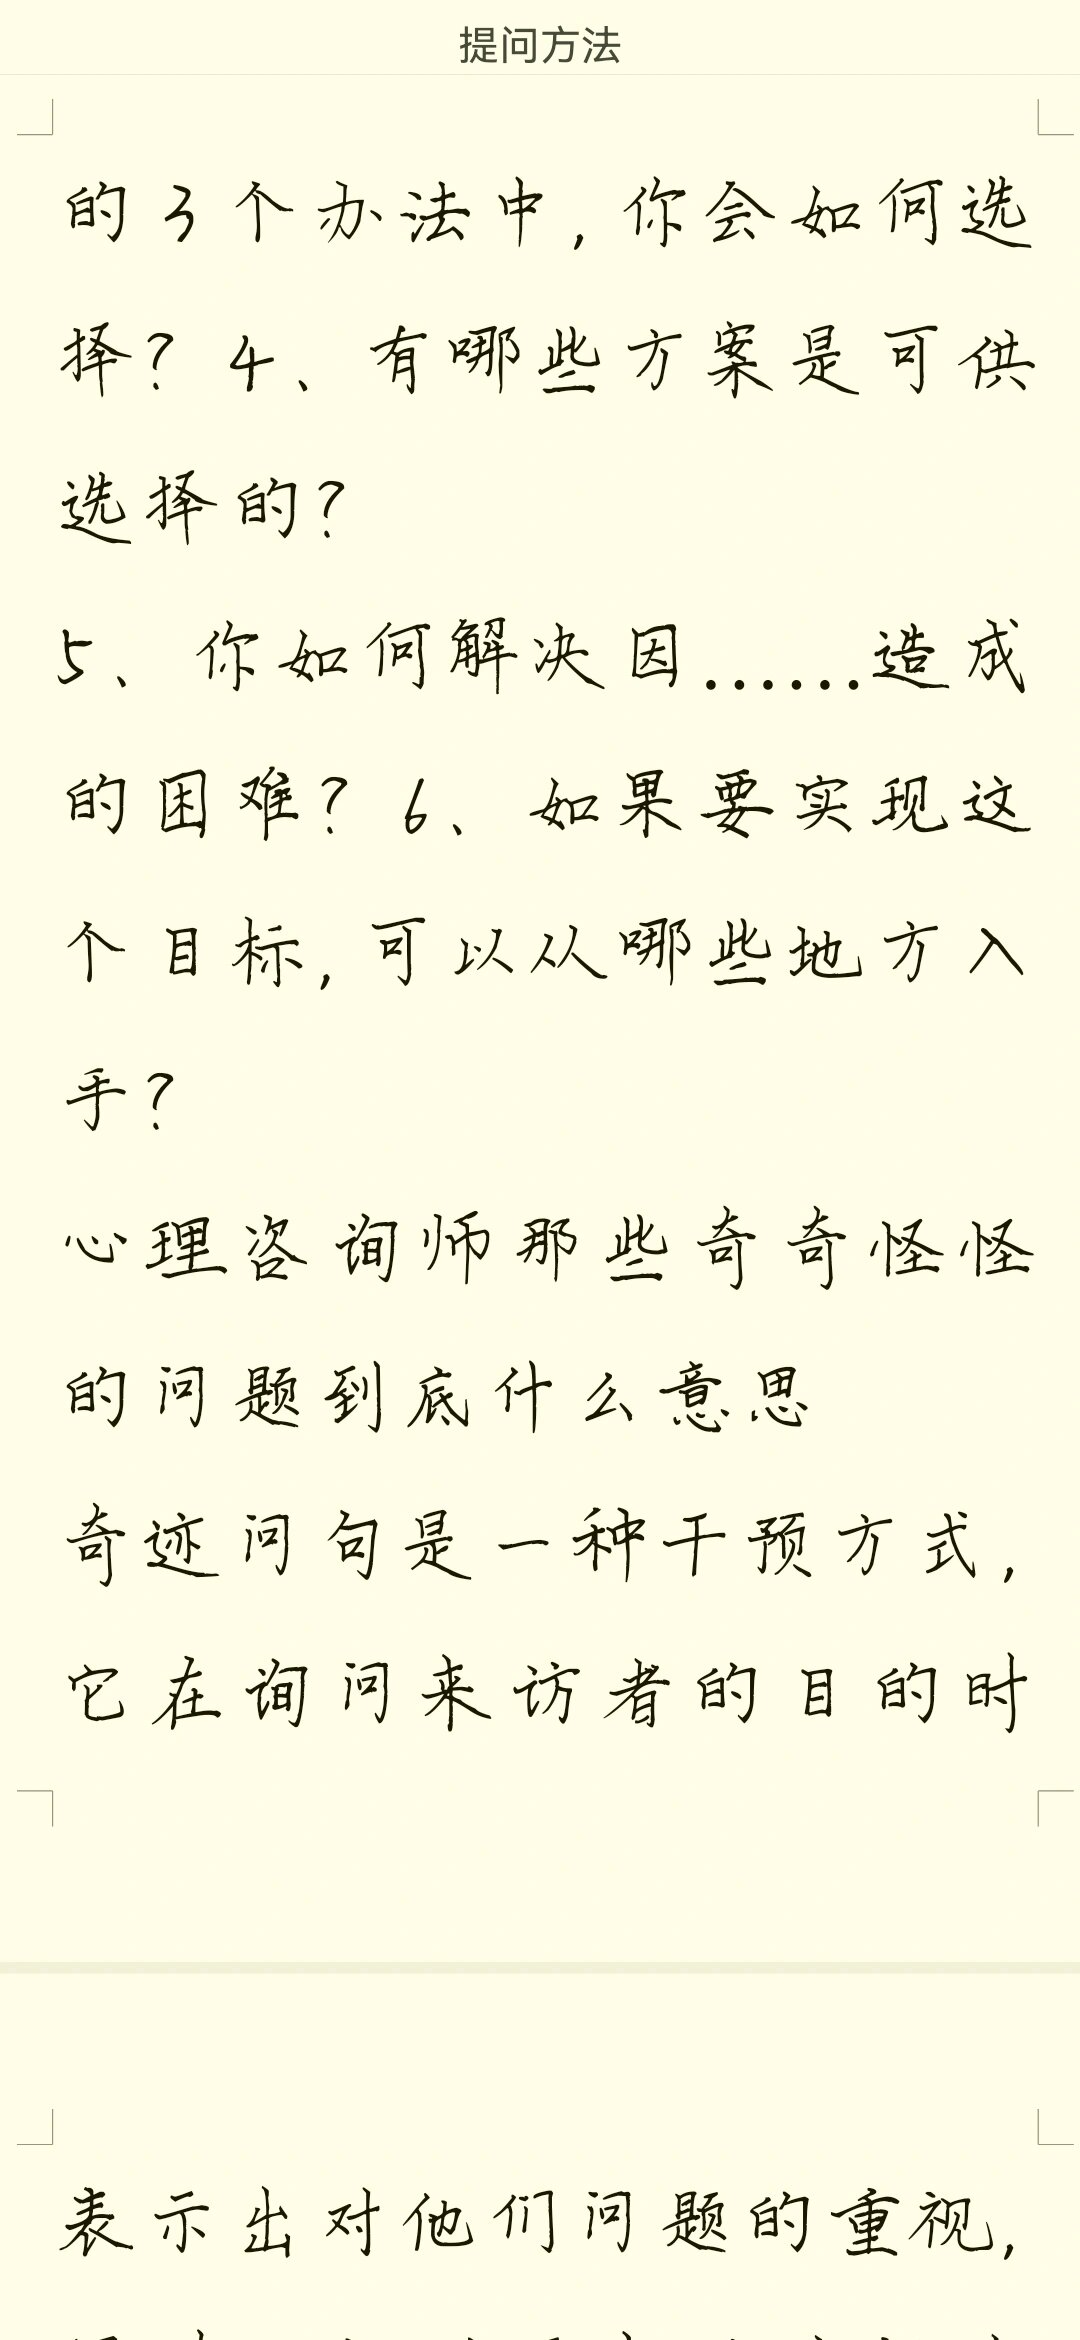 提问方法
的3个办法中,你会如何选
择?4、有哪些方案是可供
选择的?
5、你如何解决因......造成
的困难?6、如果要实现这
个目标,可以从哪些地方入
手?
心理咨询师那些奇奇怪怪
的问题到底什么意思
奇迹问句是一种干预方式,
它在询问来访者的目的时
表示出对他们问题的重视,